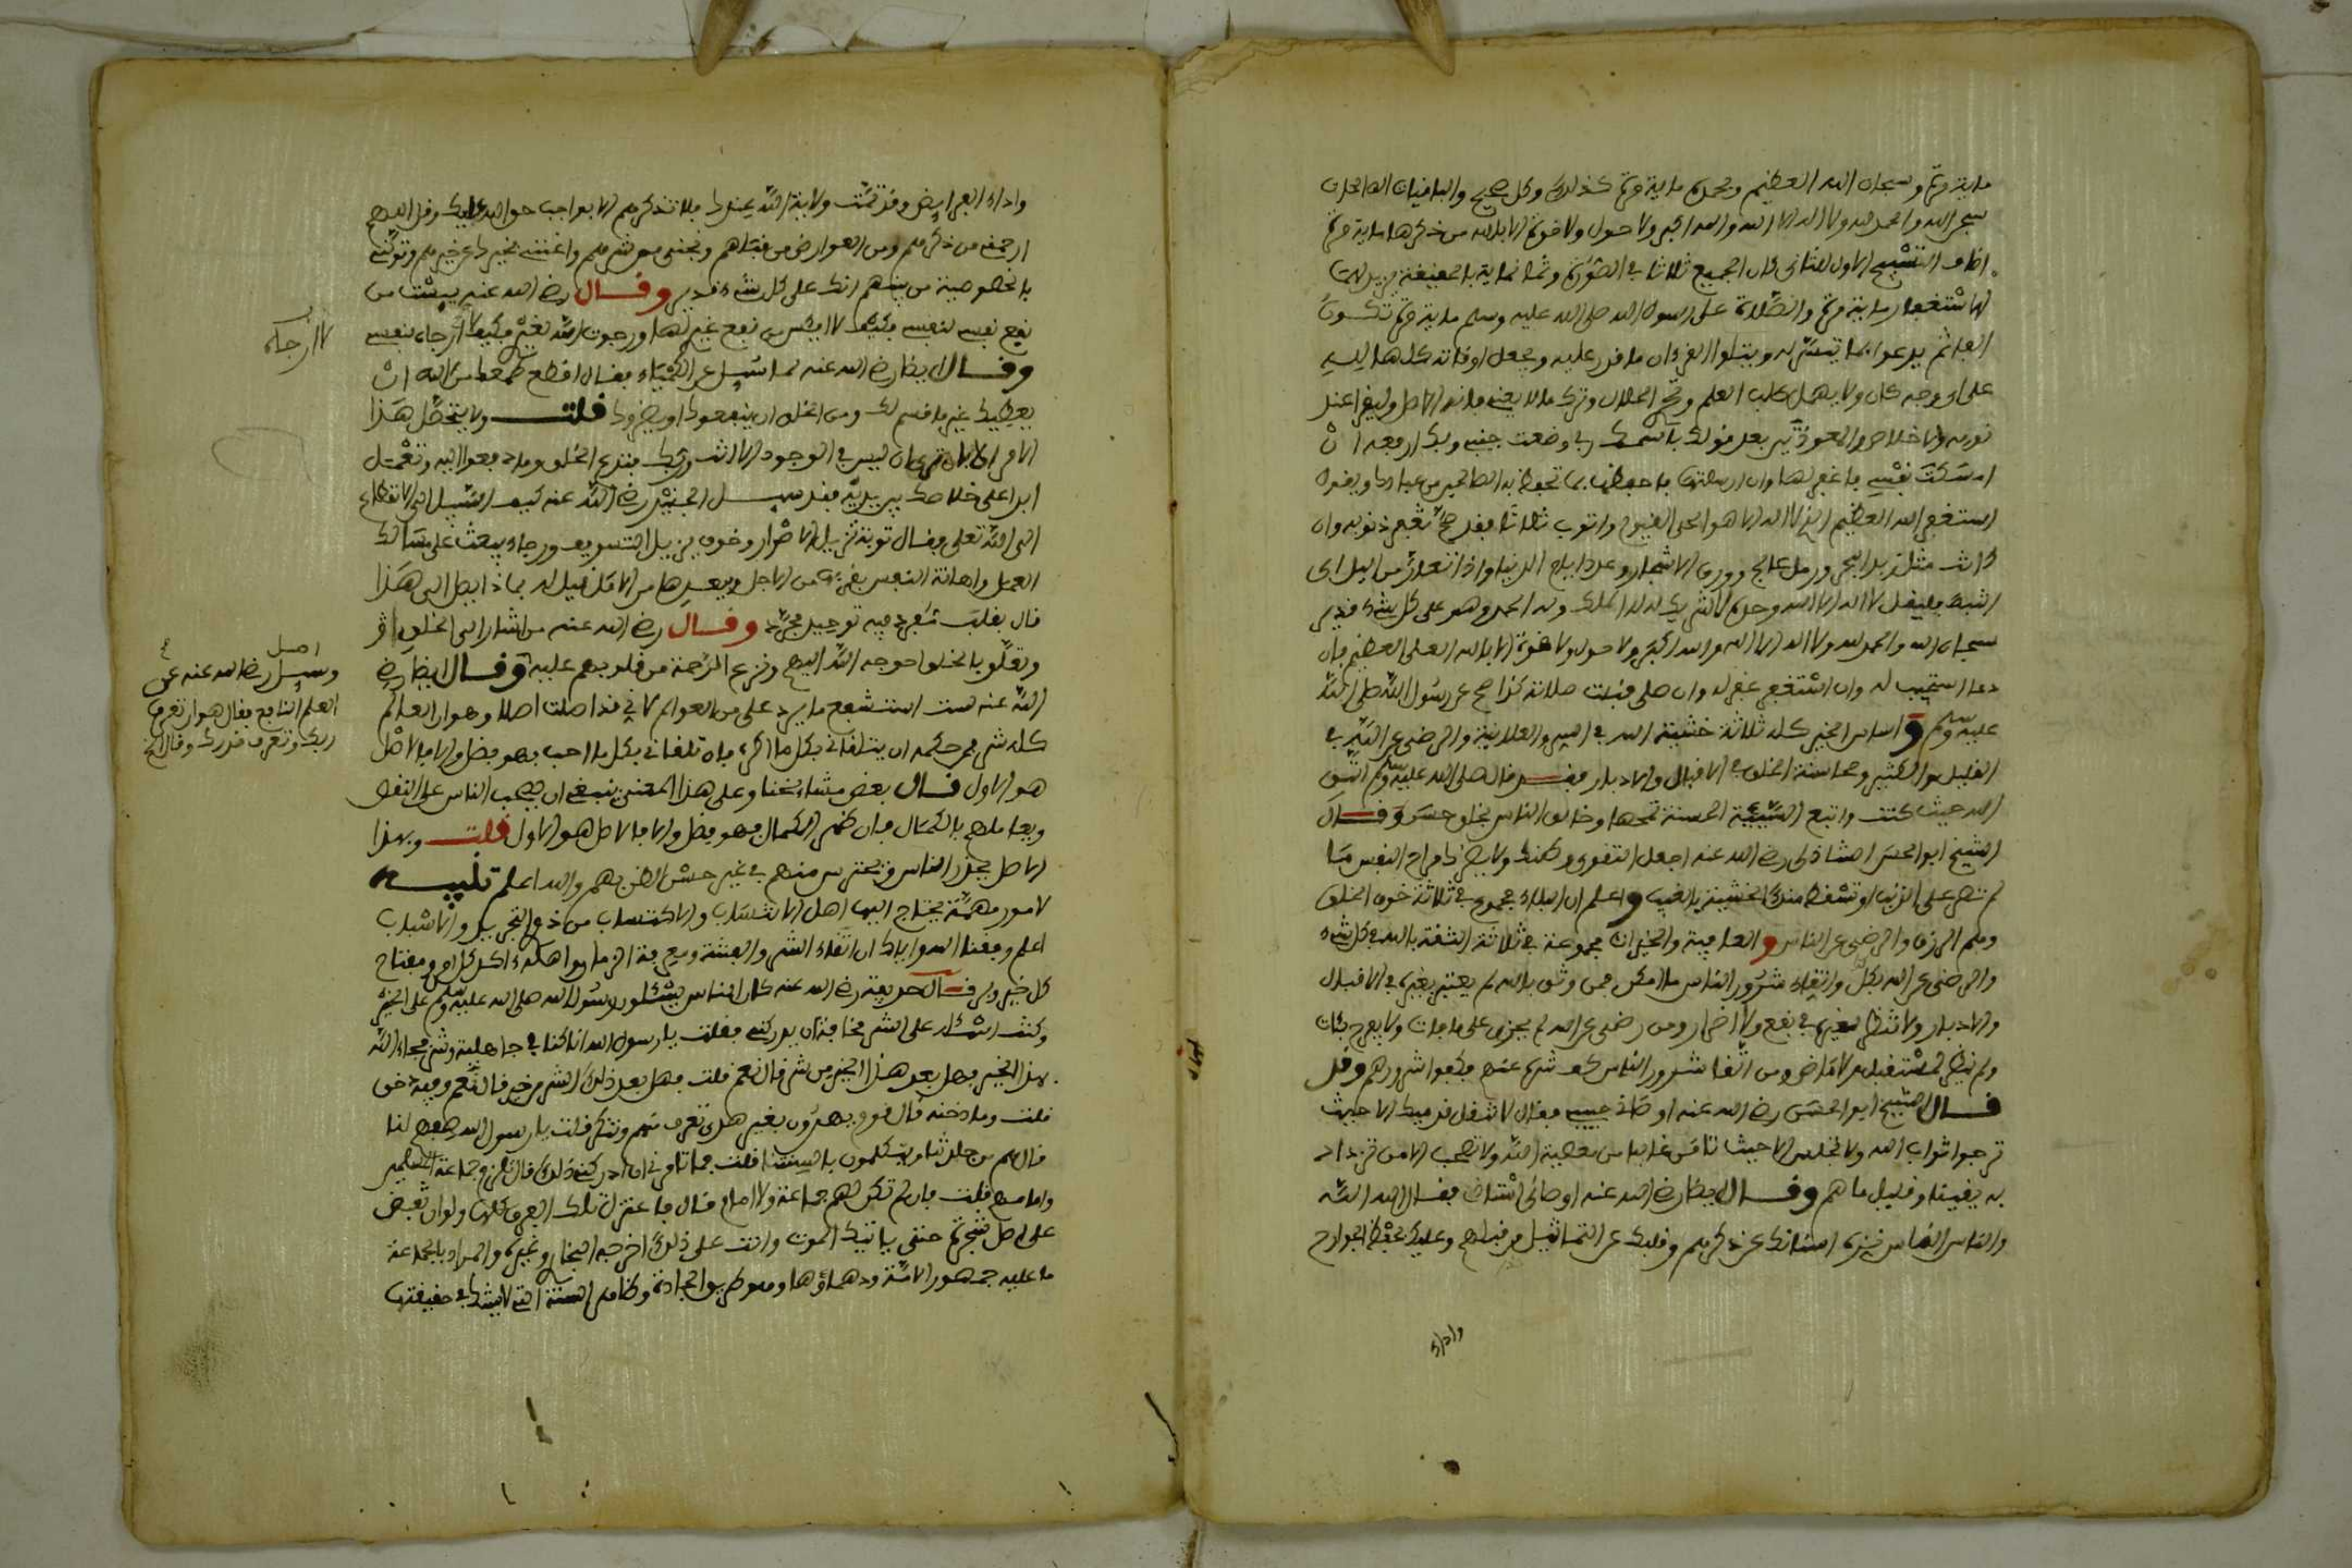 ماية مرة وسبحان الله العظيم وبحمده ماية مرة كذلك وكل صحيح والباقيات الصالحات
سبحن الله والحمد لله ولا اله الا الله والله اكبر ولا حول ولا قوة الا بالله من ذكرها ماية مرة
التسبيح الاول للثاني كان الجميع ثلاثا في الصورة وثمانماية بالحقيقة
الاستغفار ماية مرة والصلاة على رسول الله صلى الله عليه وسلم ماية مرة تكون
ثم يدعوا بما تيسر له ويتلوا القرءان ما قدر عليه ويجعل اوقاته كلها لله
على اي وجه كان ولا يهمل طلب العلم وتحري الحلال وترك ما لا يعني فانه الاصل وليقرا عند
نومه الاخلاص والمعوذتين بعد قوله باسمك ربي وضعت جنبي وبك ارفعه ان
امسكت نفسي فاغفر لها وان ارسلتها فاحفظها بما تحفظ به الصالحين من عبادك ويقول
استغفر الله العظيم الذي لا اله الا هو الحي القيوم واتوب ثلاثا فقد صح تغفر ذنوبه وان
كانت مثل زبد البحر ورمل عالج وورق الاشجار وعدد ايام الدنيا واذا تعار من اليل اي
انتبه فليقل لا اله الا الله وحده لا شريك له له الملك وله الحمد وهو على كل شيء قدير
سبحان الله والحمد لله ولا اله الا الله والله اكبر ولا حول ولا قوة الا بالله العلي العظيم فان
دعا استجيب له وان استغفر غفر له وان صلى قبلت صلاته كذا صح عن رسول الله صلى الله
عليه وسلم واساس الخير كله ثلاثة خشية الله في السر والعلانية والرضى عن الله في
القليل والكثير ومحاسنة الخلق في الاقبال والادبار فقد قال صلى الله عليه وسلم اتق
الله حيث كنت واتبع السيئة الحسنة تمحها وخالق الناس بخلق حسن وقال
الشيخ ابو الحسن الشاذلي رضي الله عنه اجعل التقوى وطنك ولا يضرك مراح النفس ما
لم تصر على الذنب او تسقط منك الخشية بالغيب واعلم ان البلاء مجموع في ثلاثة خوف الخلق
وهم الرزق والرضى عن الناس والعافية والخيرات مجموعة في ثلاثة الثقة بالله في كل شيء
والرضى عن الله بكل واتقاء شرور الناس ما امكن فمن وثق بالله لم يعتبر بغيره في الاقبال
والادبار ولا نظر لغيره في نفع ولا اضرار ومن رضي عن الله لم يحزن على ما فات ولا يفرح بئات
ولم ينظر لمستقبل ولا ماض ومن اتقا شرور الناس كف شره عنهم وكفوا شرورهم وقد
قال الشيخ ابو الحسن رضي الله عنه اوصاني حبيبي فقال لا تنقل قدميك الا حيث
ترجوا ثواب الله ولا تجلس الا حيث تامن غالبا من معصية الله ولا تصحب الا من تزداد
به يقينا وقليل ما هم وقال ايضا رضي الله عنه اوصاني استاذي فقال الله الله
والناس الناس نزه لسانك عن ذكرهم وقلبك عن التماثيل من قبلهم وعليك بحفظ الجوارح
واداء
واداء الفرايض وقد تمت ولاية الله عندك فلا تذكرهم الا بواجب حق الله عليك وقل اللهم
ارحمني من ذكرهم ومن العوارض من قبلهم ونجني من شرهم واغنني بخيرك عن خيرهم وتولني
بالخصوصية من بينهم انك على كل شيء قدير وقال رضي الله عنه يئست من
نفع نفسي لنفسي فكيف لا ايئس من نفع غيري لها ورجوت الله لغيري فكيف لا ارجاه لنفسي
لا ارجاه
وقال ايضا رضي الله عنه لما سئل عن الكمياء فقال اقطع طمعك من الله ان
يعطيك غير ما قسم لك ومن الخلق ان ينفعوك او يضروك قلت ولا يتحصل هذا
الامر الا بان ترى ان ليس في الوجود الا انت وربك فتدع الخلق وما دفعوا اليه وتعمل
ابدا على خلاصك بين يديه فقد سئل الجنيد رضي الله عنه كيف السبيل الى الانقطاع
الى الله تعلى فقال توبة تزيل الاصرار وخوف يزيل التسويف ورجاء يبعث على مسالك
العمل واهانة النفس بقربها من الاجل وبعدها من الامل قيل له بماذا يصل الى هذا
قال بقلب مفرد فيه توحيد مجرد وقال رضي الله عنه من اشار الى الخلق او
وتعلق بالخلق احوجه الله اليهم ونزع الرحمة من قلوبهم عليه وقال ايضا رضي
الله عنه لست استشنع ما يرد علي من العوالم لاني قد اصلت اصلا وهو ان العالم
كله شر فمن حكمه ان يتلقاني بكل ما اكره فان تلقاني بكل ما احب فهو فضل والا فالاصل
هو الاول قال بعض مشائخنا وعلى هذا المعنى ينبغي ان يصحب الناس على النقص
ويعاملهم بالكمال فان ظهر الكمال فهو فضل والا فالاصل هو الاول قلت وبهذا
الاصل يحذر الناس ويحترس منهم في غير حسن الظن بهم والله اعلم تنبيه
لامور مهمة يحتاج اليها اهل الانتساب والاكتساب من ذوي التجريد والاسباب
اعلم وفقنا الله واياك ان اتقاء الشر والفتنة ومعرفة الزمان واهله اصل كل امر ومفتاح
كل خير وقد قال حذيفة رضي الله عنه كان الناس يسئلون رسول الله صلى الله عليه وسلم على الخير
وكنت اسئله على الشر مخافة ان يدركني فقلت يا رسول الله انا كنا في جاهلية وشر فجاء الله
بهذا الخير فهل بعد هذا الخير من شر قال نعم قلت فهل بعد ذلك الشر من خير قال نعم وفيه دخن
قلت وما دخنه قال قوم يهدون بغير هدي تعرف منهم وتنكر قلت يا رسول الله صفهم لنا
قال هم من جلدتنا ويتكلمون بالسنتنا قلت فما تامرني ان ادركني ذلك قال تلزم جماعة المسلمين
وامامهم قلت فان لم تكن لهم جماعة ولا امام قال فاعتزل تلك الفرق كلها ولو ان تعض
على اصل شجرة حتى ياتيك الموت وانت على ذلك اخرجه البخاري وغيره والمراد بالجماعة
ما عليه جمهور الامة ودهماؤها وهو طريق الجادة وظاهر السنة التي لا يشك في حقيقتها
اصل
وسئل رضي الله عنه عن
العلم النافع فقال هو ان تعرف
ربك وتعرف قدرك وقال الخ